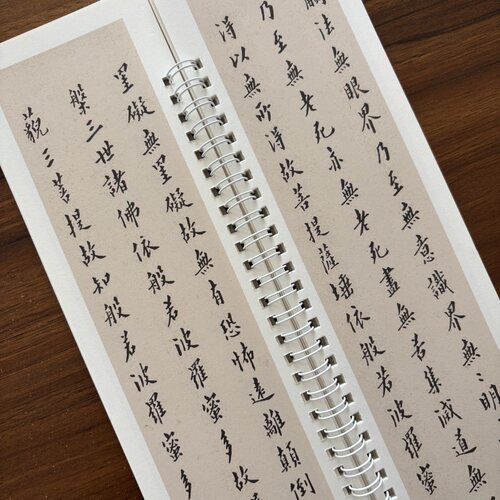 法無眼界乃至無意識界無〻明
乃至無老死亦無老死盡無苦集滅道無
得以無所得故菩提薩埵依般若波羅蜜
罣礙無罣礙故無有恐怖遠離顛倒
槃三世諸佛依般若波羅蜜多故
藐三菩提故知般若波羅蜜多